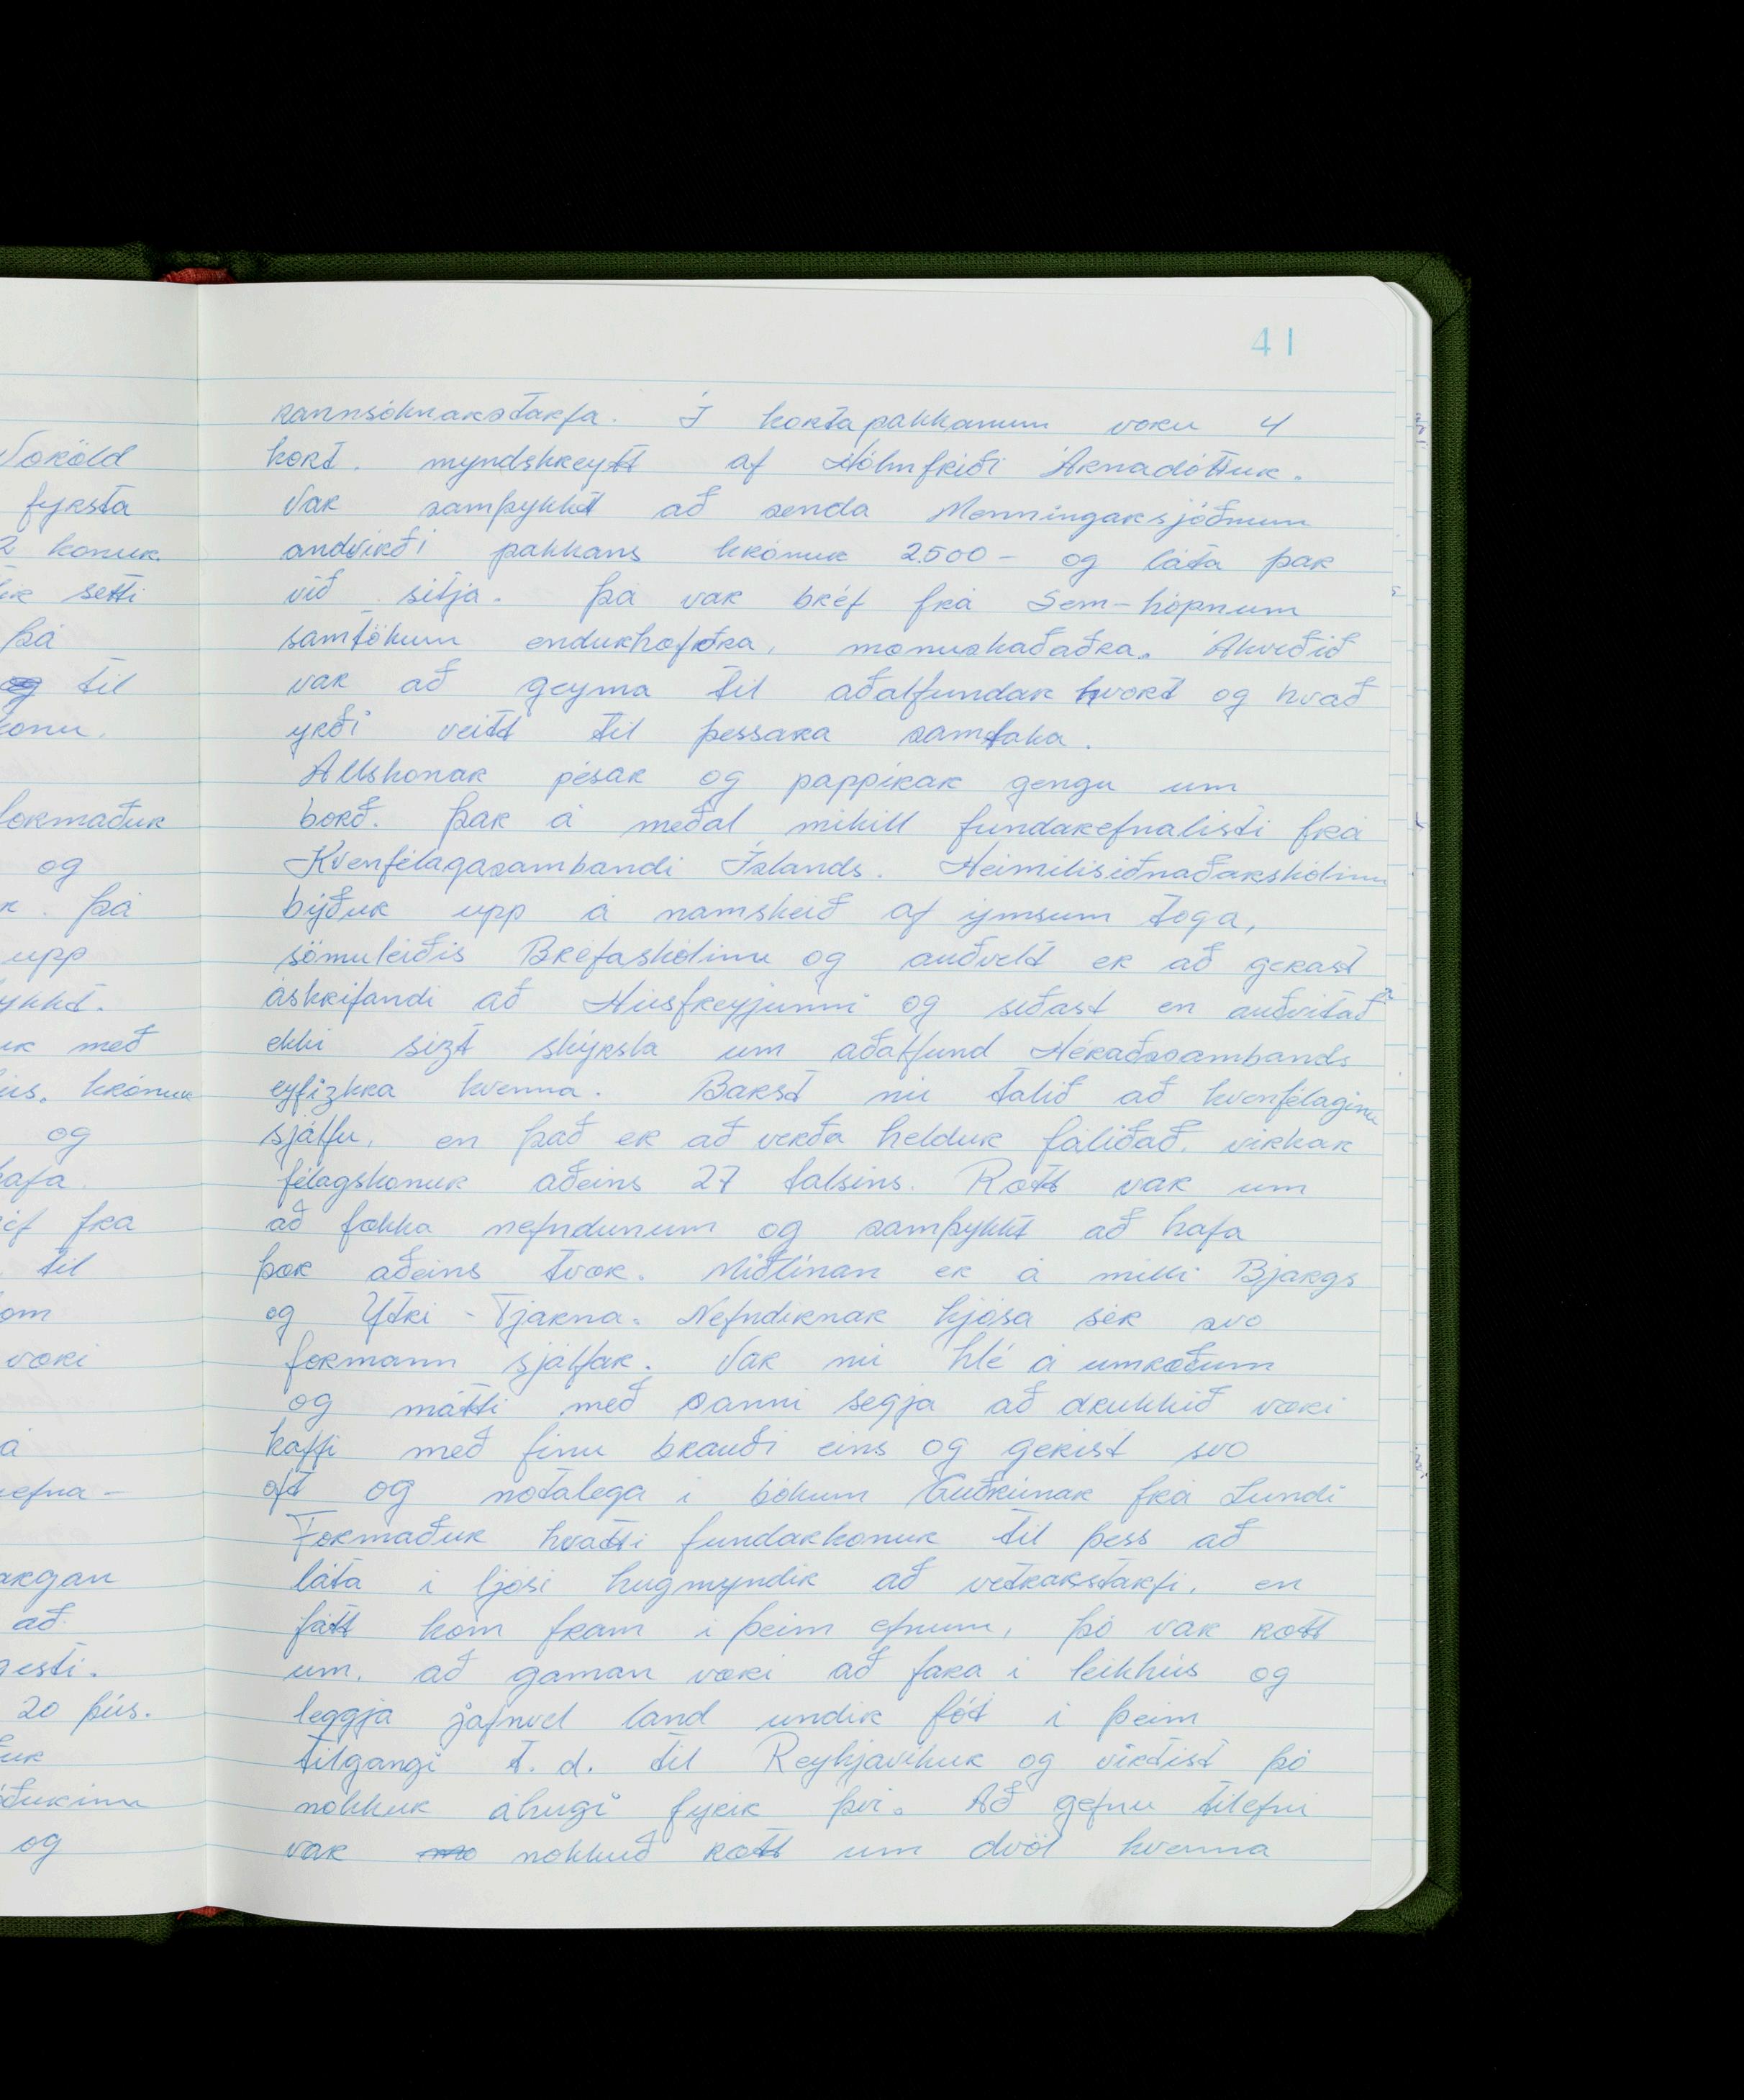 41
rannsóknarstarfa. Í kortapakkanum voru 4
kort. myndskreytt af Hólmfríði Árnadóttur.
Var samþykkt að senda Menningarsjóðnum
andvirði pakkans krónur 2.500- og láta þar
við sitja. Þá var bréf frá Sem-hópnum
samtökum endurhæfðra, mænuskaðaðra. Ákveðið
var að geyma til aðalfundar hvort og hvað
yrði veitt til þessara samtaka.
Allskonar pésar og pappírar gengu um
borð. Þar á meðal mikill fundarefnalisti frá
Kvenfélagasambandi Íslands. Heimilisiðnaðarskólinn
býður upp á námskeið af ýmsum toga,
sömuleiðis Bréfaskólinn og auðvelt er að gerast
áskrifandi að Húsfreyjunni og síðast en auðvitað
ekki sízt skýrsla um aðalfund Héraðssambands
eyfizkra kvenna. Barst nú talið að kvenfélaginu
sjálfu, en það er að verða heldur fáliðað. virkar
félagskonur aðeins 27 talsins. Rætt var um
að fækka nefndunum og samþykkt að hafa
þær aðeins tvær. Miðlínan er á milli Bjargs
og Ytri-Tjarna. Nefndirnar kjósa sér svo
formann sjálfar. Var nú hlé á umræðum
og mátti með sanni segja að drukkið væri
kaffi með fínu brauði eins og gerist svo
oft og notalega í bókum Guðrúnar frá Lundi
Formaður hvatti fundarkonur til þess að
láta í ljósi hugmyndir að vetrarstarfi, en
fátt kom fram í þeim efnum, þó var rætt
um, að gaman væri að fara í leikhús og
leggja jafnvel land undir fót í þeim
tilgangi t.d. til Reykjavíkur og virtist þó
nokkur áhugi fyrir því. Að gefnu tilefni
var nokkuð rætt um dvöl kvenna
Voröld
fyrsta
2 konur.
setti
þá
og til
konu.
formaður
og
þá
upp
með
þús. krónur
og
hafa
frá
til
væri
á
að
gesti.
20 þús.
og